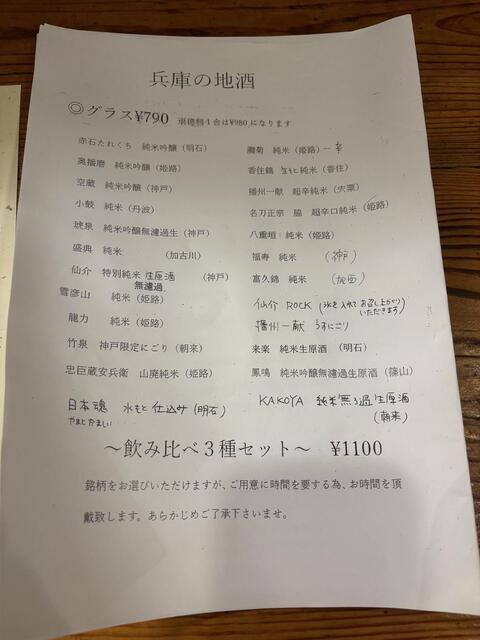 兵庫の地酒
◎グラス¥790 ※徳利1合は¥980になります
赤石たれくち 純米吟醸（明石）
奥播磨 純米吟醸（姫路）
空蔵 純米吟醸（神戸）
小鼓 純米（丹波）
琥泉 純米吟醸無濾過生（神戸）
盛典 純米 （加古川）
仙介 特別純米 生原酒 （神戸）
無濾過
雪彦山 純米（姫路）
龍力 純米（姫路）
竹泉 神戸限定にごり（朝来）
忠臣蔵安兵衛 山廃純米（姫路）
日本魂 水もと仕込み（明石）
やまとだましい
灘菊 純米（姫路）一辛
香住鶴 生もと純米（香住）
播州一献 超辛純米（宍粟）
名刀正宗 脇 超辛口純米（姫路）
八重垣 純米（姫路）
福寿 純米 （神戸）
富久錦 純米 （加西）
仙介 ROCK（氷を入れてお召し上がり
いただきます）
播州一献 うすにごり
来楽 純米生原酒 （明石）
鳳鳴 純米吟醸無濾過生原酒（篠山）
KAKOYA 純米無ろ過生原酒
（朝来）
～飲み比べ3種セット～ ¥1100
銘柄をお選びいただけますが、ご用意に時間を要する為、お時間を頂
戴致します。あらかじめご了承下さいませ。